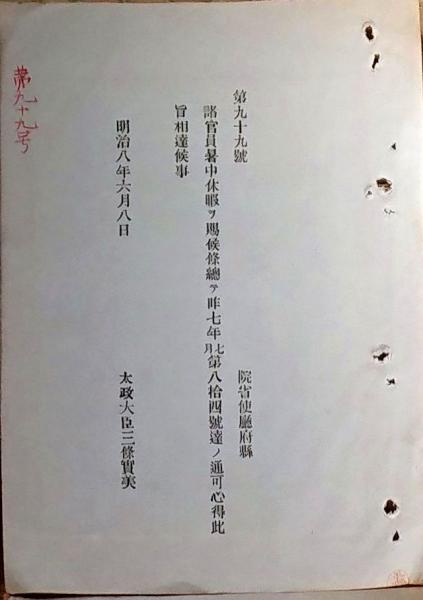 第九十九号
第九十九號
院省使廳府縣
諸官員暑中休暇ヲ賜候條總テ昨七年七月第八拾四號達ノ通可心得此
旨相達候事
明治八年六月八日
太政大臣三條實美